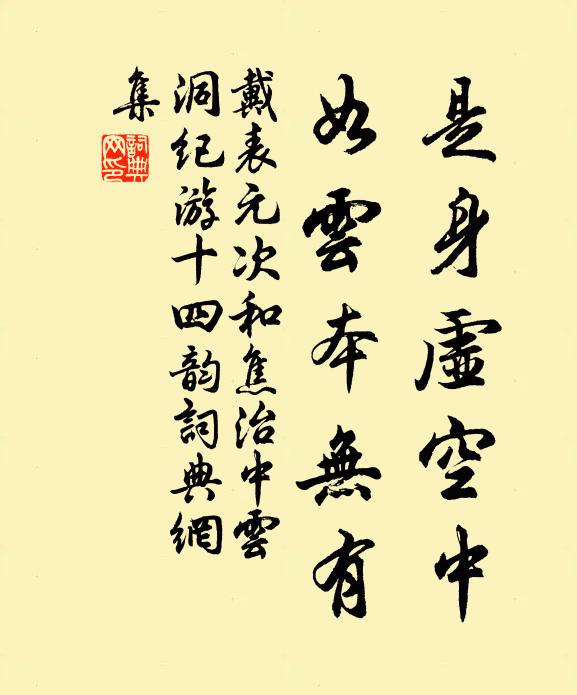 是身虛空中
如雲本無有
戴表元次和焦治中雲
洞纪游十四韵詞典網
集
詞典
网印